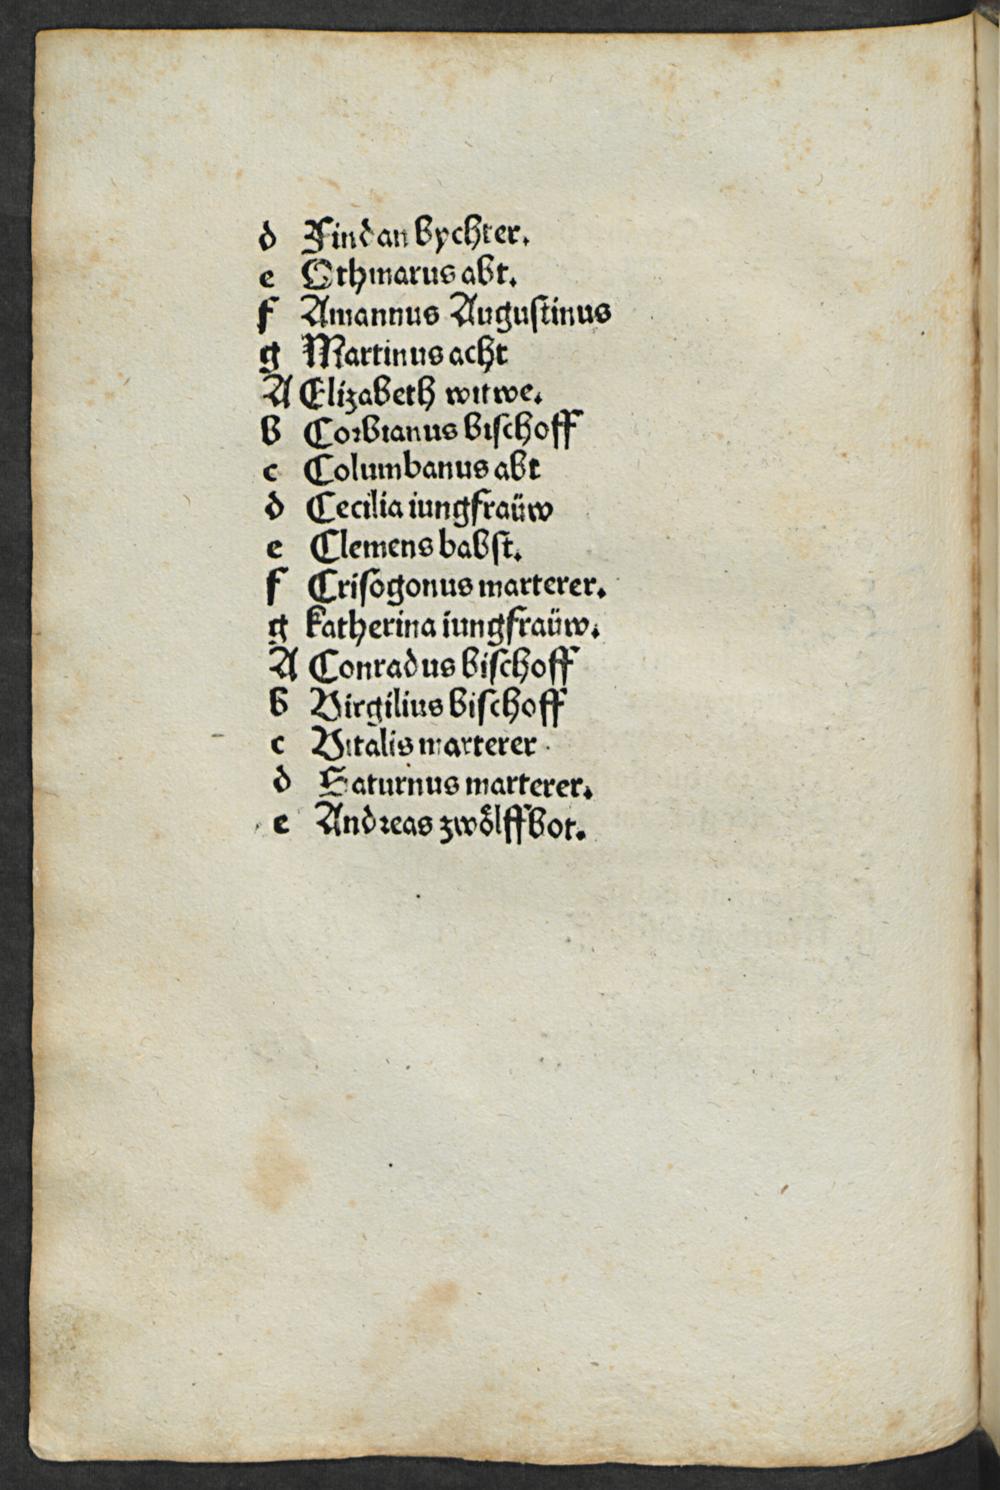 d Findan bychter.
e Othmarus abt.
f Amannus Augustinus
g Martinus acht
A Elizabeth witwe.
b Corbianus bischoff
c Columbanus abt
d Cecilia iungfraüw
e Clemens babst.
f Crisogonus marterer.
g katherina iungfraüw.
A Conradus bischoff
b Virgilius bischoff
c Vitalis marterer.
d Saturnus marterer.
e Andreas zwölffbot.